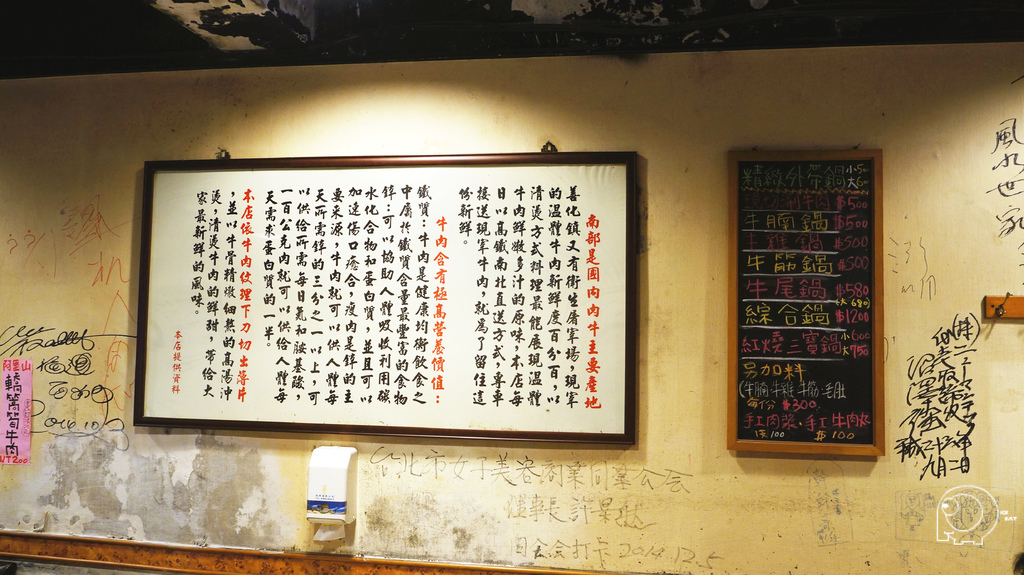 南部是國內肉牛主要產地
善化鎮又有衛生屠宰場,現宰
的溫體牛肉新鮮度百分百,以
清燙方式料理最能展現溫體
牛肉鮮嫩多汁的原味,本店每
日以高鐵南北直送方式,專車
接送現宰牛肉,就為了留住這
份新鮮。
牛肉含有極高營養價值:
鐵質:牛肉是健康均衡飲食之
中屬於鐵質含量最豐富的食物
鋅:可以協助人體吸收利用碳
水化合物和蛋白質,並且可以
加速傷口癒合,瘦肉是鋅的主
要來源,牛肉就可以供人體每
天所需鋅的三分之一以上,可
以供給所需每日氨和胺基酸,
一百公克肉就可以供給人體每
天需求蛋白質的一半。
本店依牛肉紋理下刀切出薄片
,並以牛骨精燉細熬的高湯沖
燙,清燙牛肉的鮮甜,帶給大
家最新鮮的風味。
本店提供資料
精緻外帶鍋 小5
大6
牛肉 $500
牛腩鍋 $500
牛雜鍋 $500
牛筋鍋 $500
牛尾鍋 $580
(大680)
綜合鍋 $1200
紅燒三寶鍋 小600
大750
另加料
(牛腩.牛雜.牛筋.毛肚
每份 $300
手工肉漿.手工牛肉丸
$100 $100
阿里山
轎篙筍牛肉
NT200
風水世家
台北市女子美容商業同業公會
理事長許
2014.12.5
九月二日